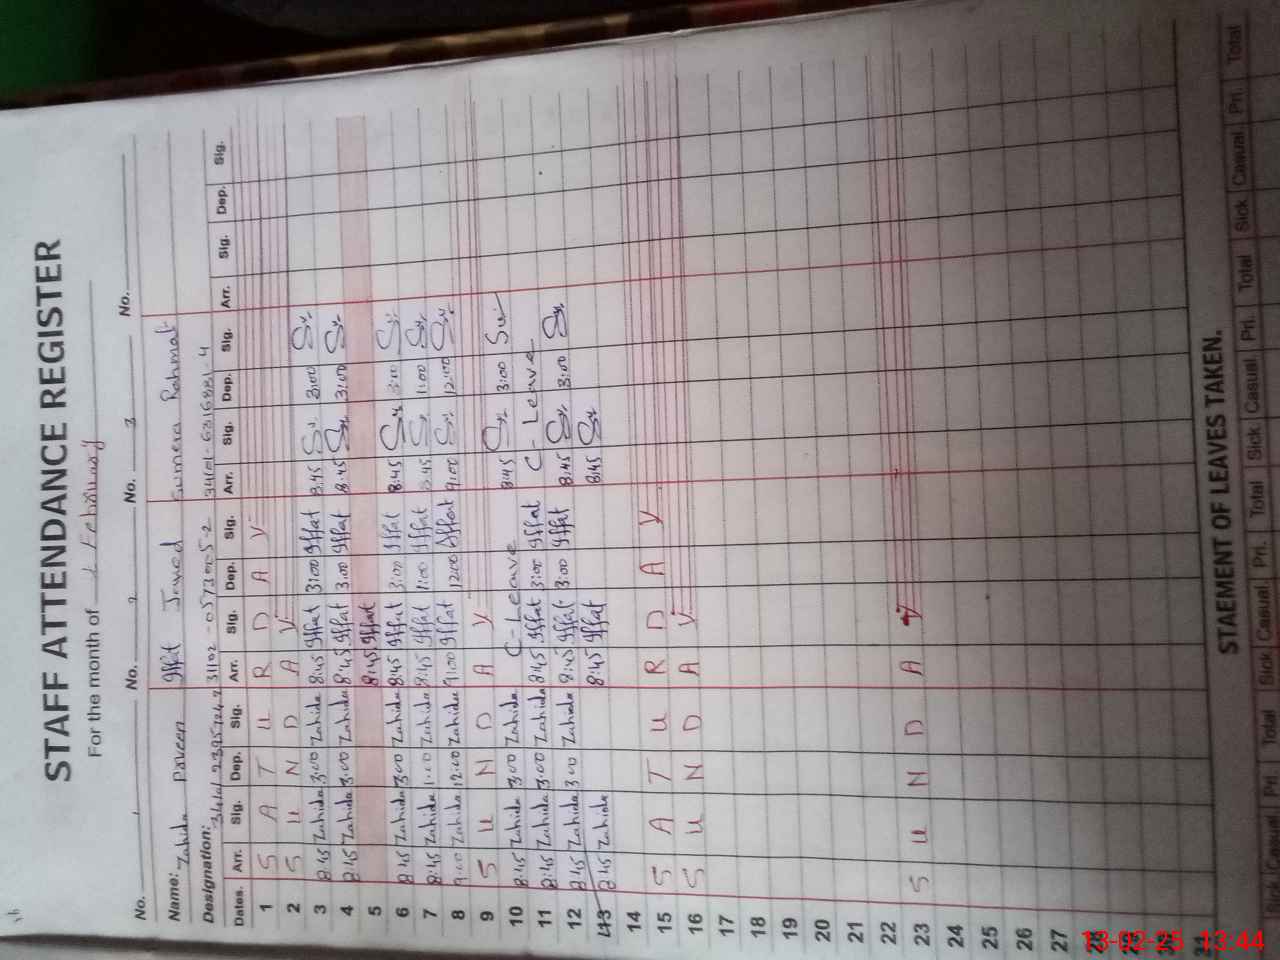 STAFF ATTENDANCE REGISTER
For the month of February
No. 1 No. 2 No. 3 No.
Name: Zahida Paveen Iffat Javed Sumera Rahmat
Designation:
Dates. Arr. Sig. Dep. Sig. Arr. Sig. Dep. Sig. Arr. Sig. Dep. Sig. Arr. Sig. Dep. Sig.
1 S A T U R D A Y
2 S U N D A Y
3 8:45 Zahida 3:00 Zahida 8:45 Iffat 3:00 Iffat 8:45 3:00
4 8:45 Zahida 3:00 Zahida 8:45 Iffat 3:00 Iffat 8:45 3:00
5 8:45 Iffat
6 8:45 Zahida 3:00 Zahida 8:45 Iffat 3:00 Iffat 8:45 3:00
7 8:45 Zahida 1:00 Zahida 8:45 Iffat 1:00 Iffat 8:45 1:00
8 9:00 Zahida 12:00 Zahida 9:00 Iffat 12:00 Iffat 9:00 12:00
9 S U N D A Y
10 8:45 Zahida 3:00 Zahida C-Leave 8:45 3:00
11 8:45 Zahida 3:00 Zahida 8:45 Iffat 3:00 Iffat C-Leave
12 8:45 Zahida 3:00 Zahida 8:45 Iffat 3:00 Iffat 8:45 3:00
13 8:45 Zahida 8:45 Iffat 8:45
14
15 S A T U R D A Y
16 S U N D A Y
17
18
19
20
21
22
23 S U N D A Y
24
25
26
27
28
29
30
31
STAEMENT OF LEAVES TAKEN.
Sick Casual Pri. Total Sick Casual. Pri. Total Sick Casual. Pri. Total Sick Casual. Pri. Total
13-02-25 13:44